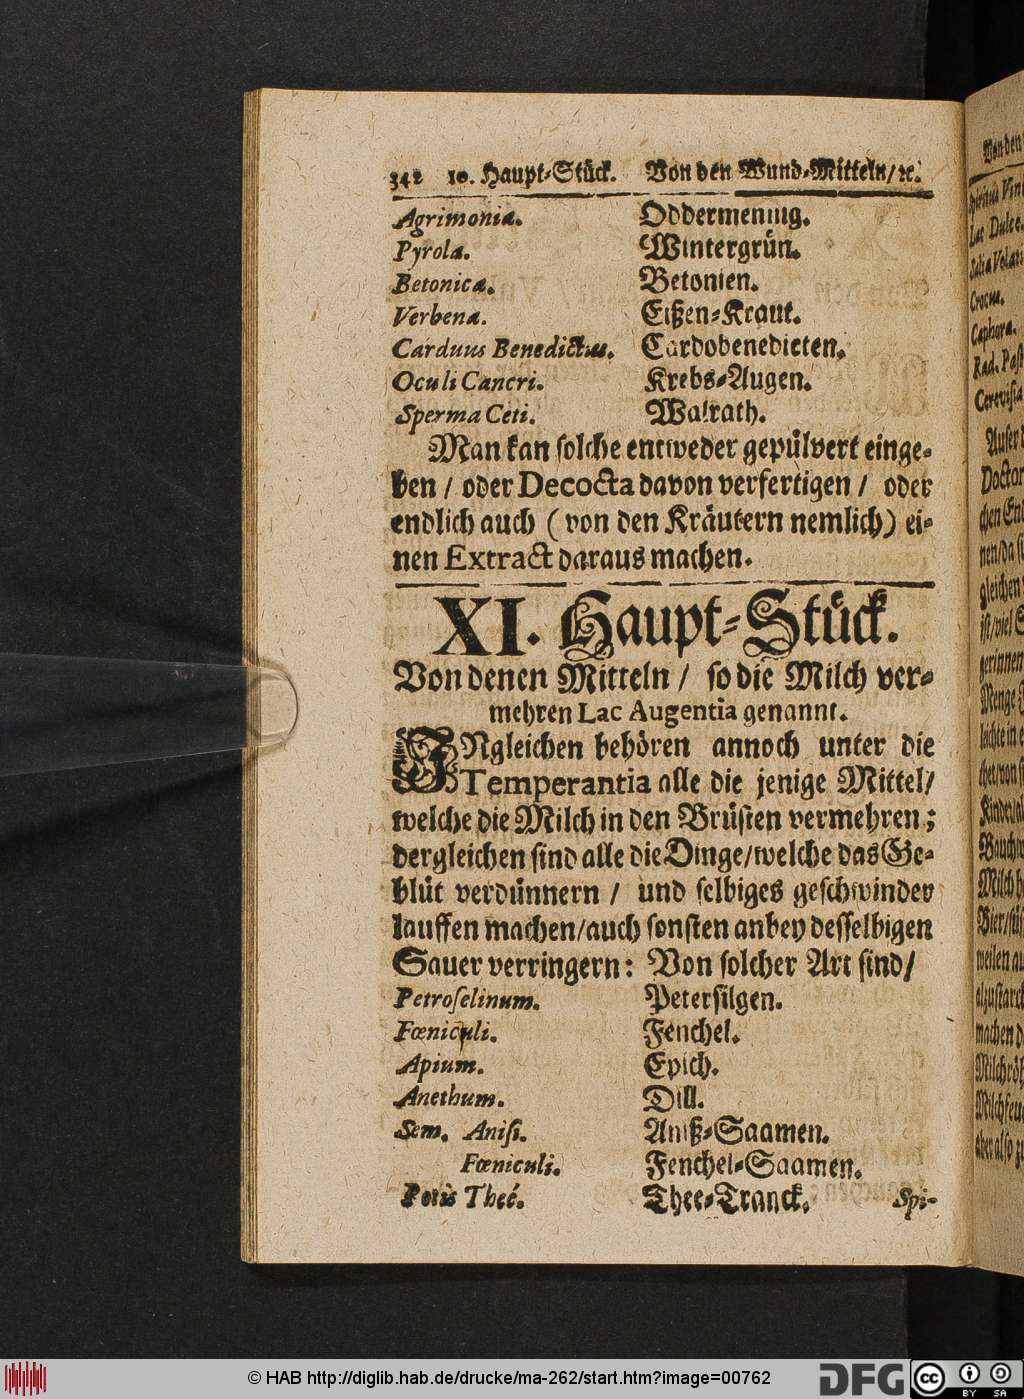 342 10. Haupt-Stück. Von den Wund-Mitteln/ ꝛc.
Agrimonia. Oddermennig.
Pyrola. Wintergrün.
Betonica. Betonien.
Verbena. Eißen-Kraut.
Carduus Benedictus. Cardobenedicten.
Oculi Cancri. Krebs-Augen.
Sperma Ceti. Walrath.
Man kan solche entweder gepülvert einge-
ben / oder Decocta davon verfertigen / oder
endlich auch ( von den Kräutern nemlich) ei-
nen Extract daraus machen.
XI. Haupt-Stück.
Von denen Mitteln / so die Milch ver-
mehren Lac Augentia genannt.
INgleichen behören annoch unter die
Temperantia alle die jenige Mittel/
welche die Milch in den Brüsten vermehren;
dergleichen sind alle die Dinge/welche das Ge-
blüt verdünnern / und selbiges geschwinder
lauffen machen/auch sonsten anbey desselbigen
Sauer verringern: Von solcher Art sind/
Petroselinum. Petersilgen.
Fœniculi. Fenchel.
Apium. Epich.
Anethum. Dill.
Sem. Anisi. Aniß-Saamen.
Fœniculi. Fenchel-Saamen.
Potus Theé. Thee-Tranck. Spi-
Von den
Lac Dulce.
Crocus.
Caphora.
Rad. Past
Cerevisia
Auser d
Doctor
© HAB http://diglib.hab.de/drucke/ma-262/start.htm?image=00762
DFG
cc BY SA